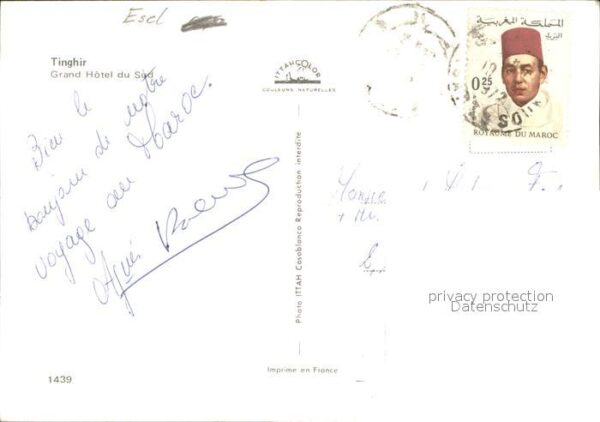 Escl
Tinghir
Grand Hôtel du Sud
ITTAHCOLOR
COULEURS NATURELLES
المملكة المغربية
البريد
0.25
ROYAUME DU MAROC
Bien le
bonjour de notre
voyage au Maroc.
Agnès
Photo ITTAH Casablanca Reproduction interdite
privacy protection
Datenschutz
Imprimé en France
1439